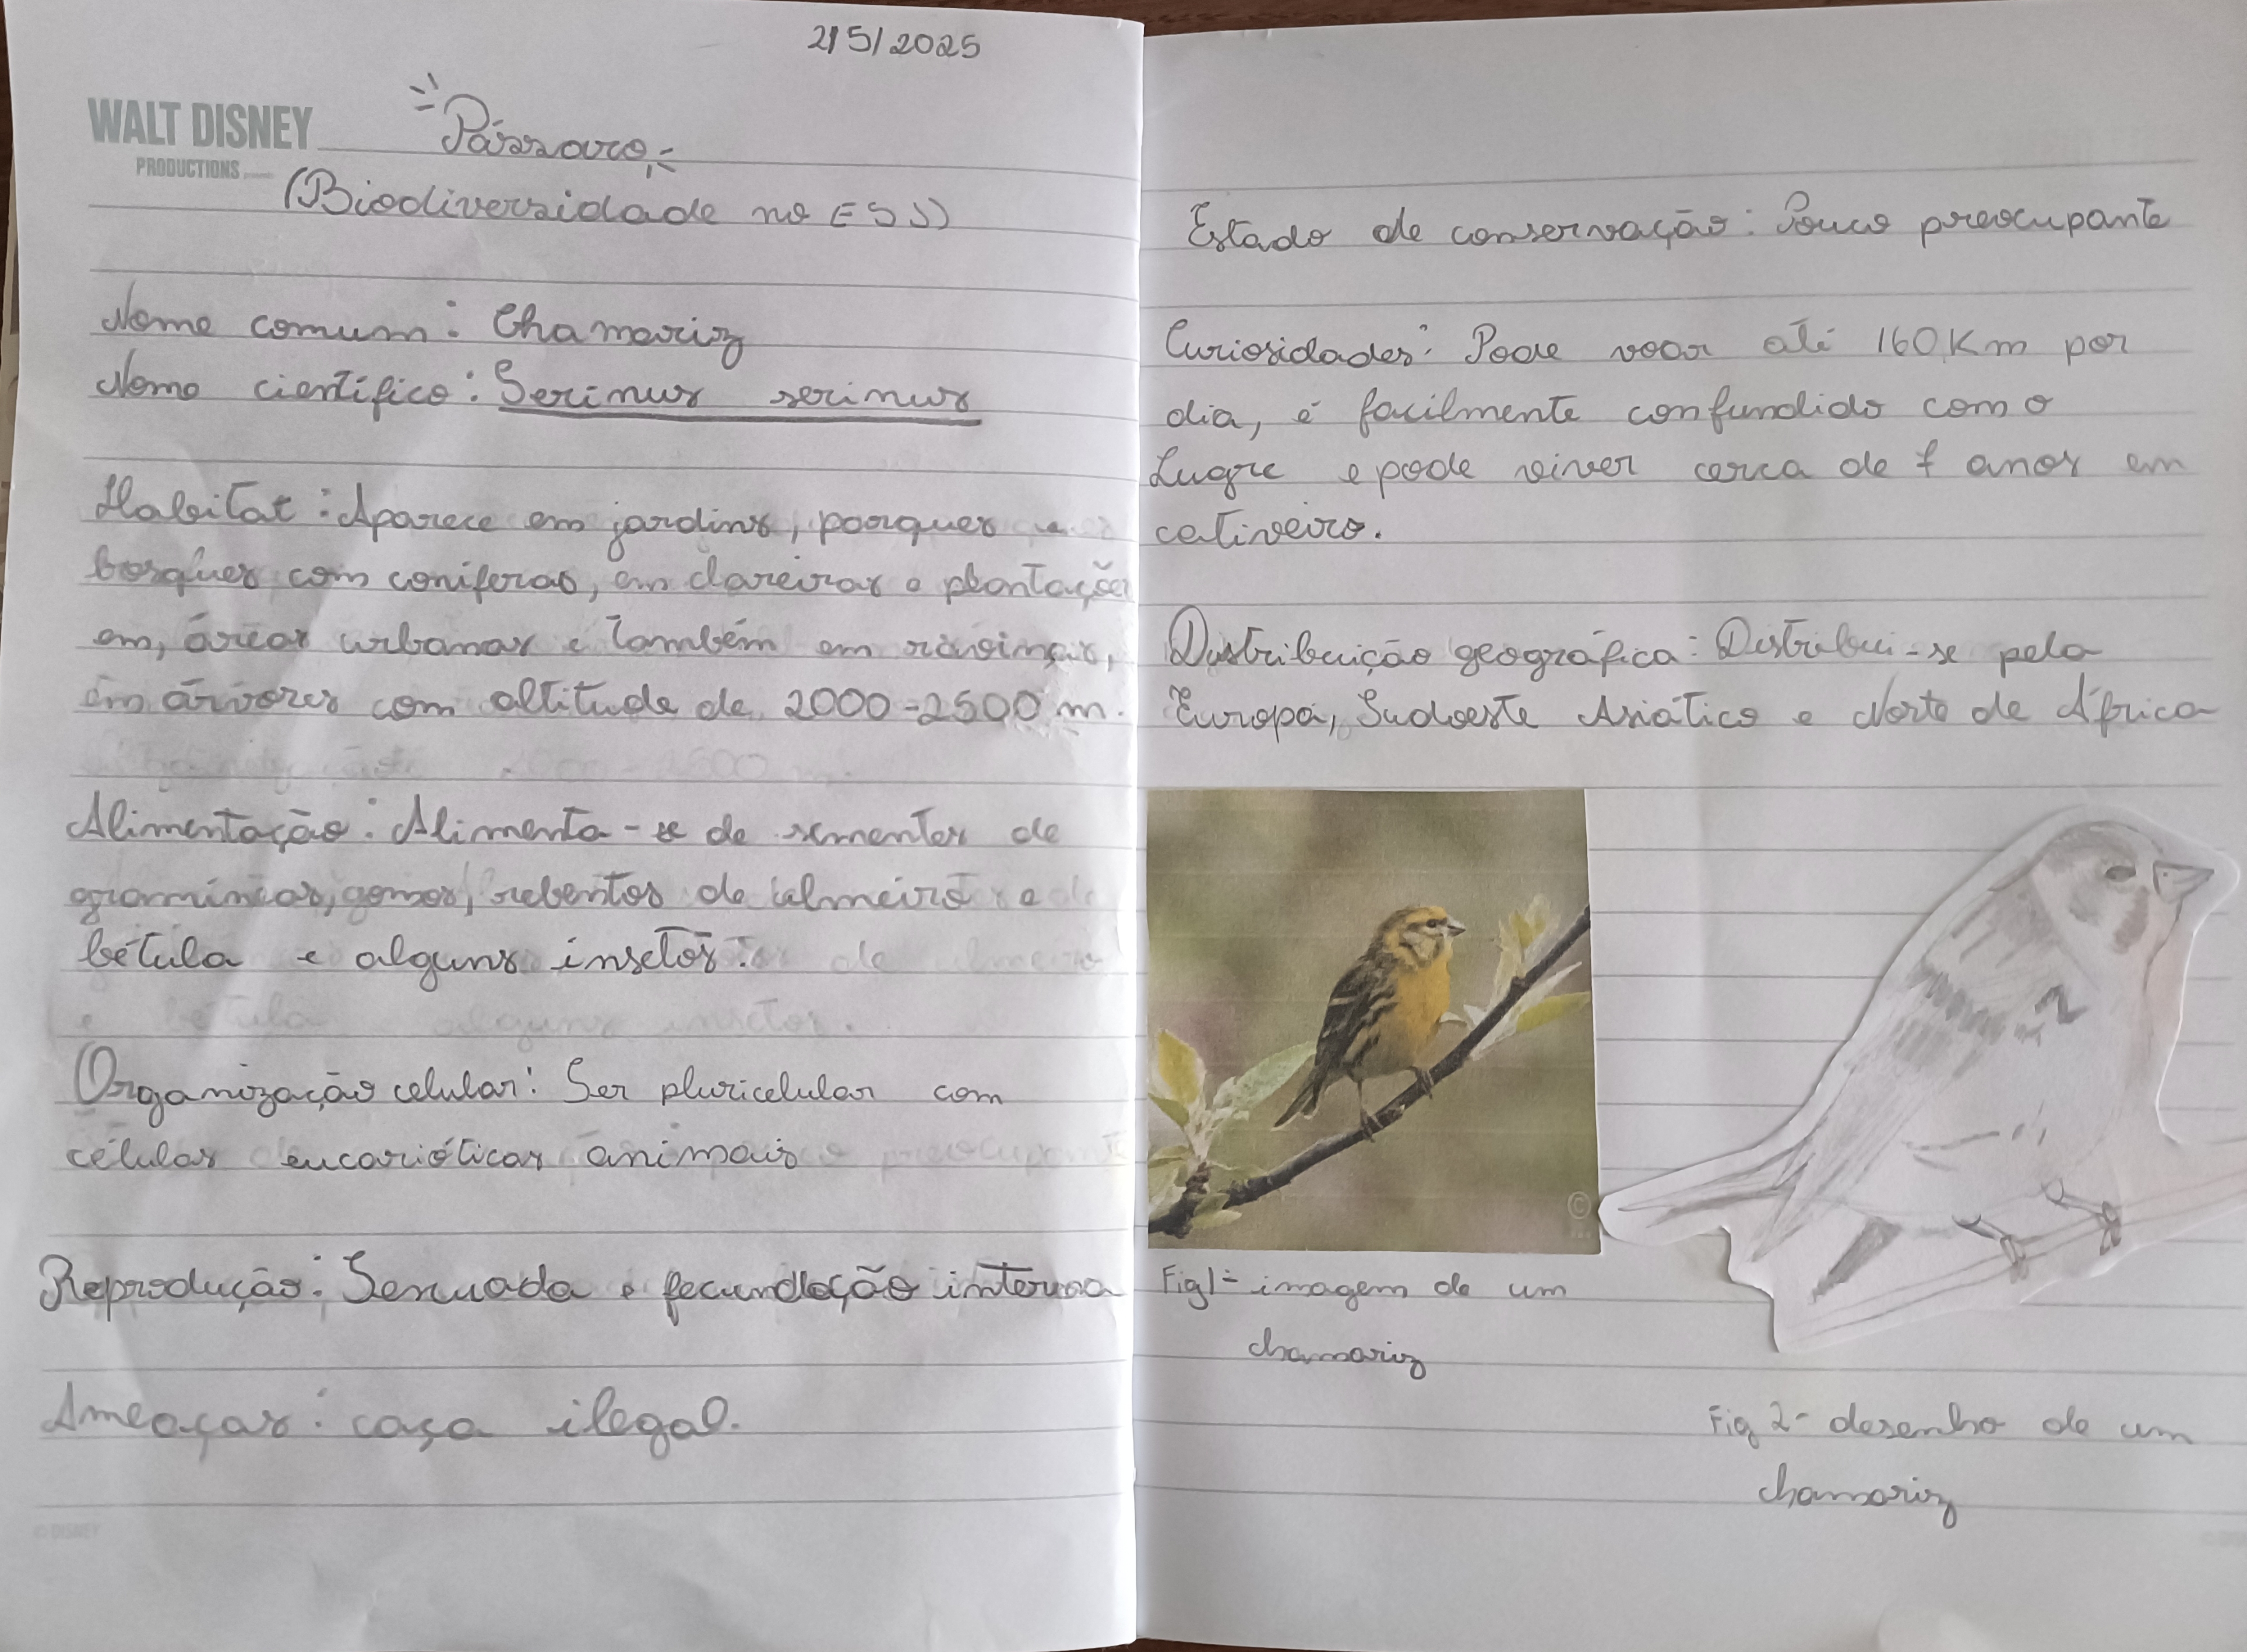 2/5/2025
WALT DISNEY
PRODUCTIONS
Pássaro
(Biodiversidade no ESJ)
Nome comum: Chamariz
Nome científico: Serinus serinus
Habitat: Aparece em jardins, parques e
bosques com coníferas, em clareiras e plantações
em, áreas urbanas e também em
em árvores com altitude de 2000-2500 m.
Alimentação: Alimenta-se de sementes de
gramíneas, gomos, rebentos de ulmeiro e
bétula e alguns insetos.
Organização celular: Ser pluricelular com
células eucarióticas animais
Reprodução: Sexuada e fecundação interna
Ameaças: caça ilegal.
© DISNEY
Estado de conservação: Pouco preocupante
Curiosidades: Pode voar até 160 Km por
dia, é facilmente confundido com o
Lugre e pode viver cerca de 7 anos em
cativeiro.
Distribuição geográfica: Distribui-se pela
Europa, Sudoeste Asiático e Norte de África
Fig1- imagem de um
chamariz
Fig 2- desenho de um
chamariz